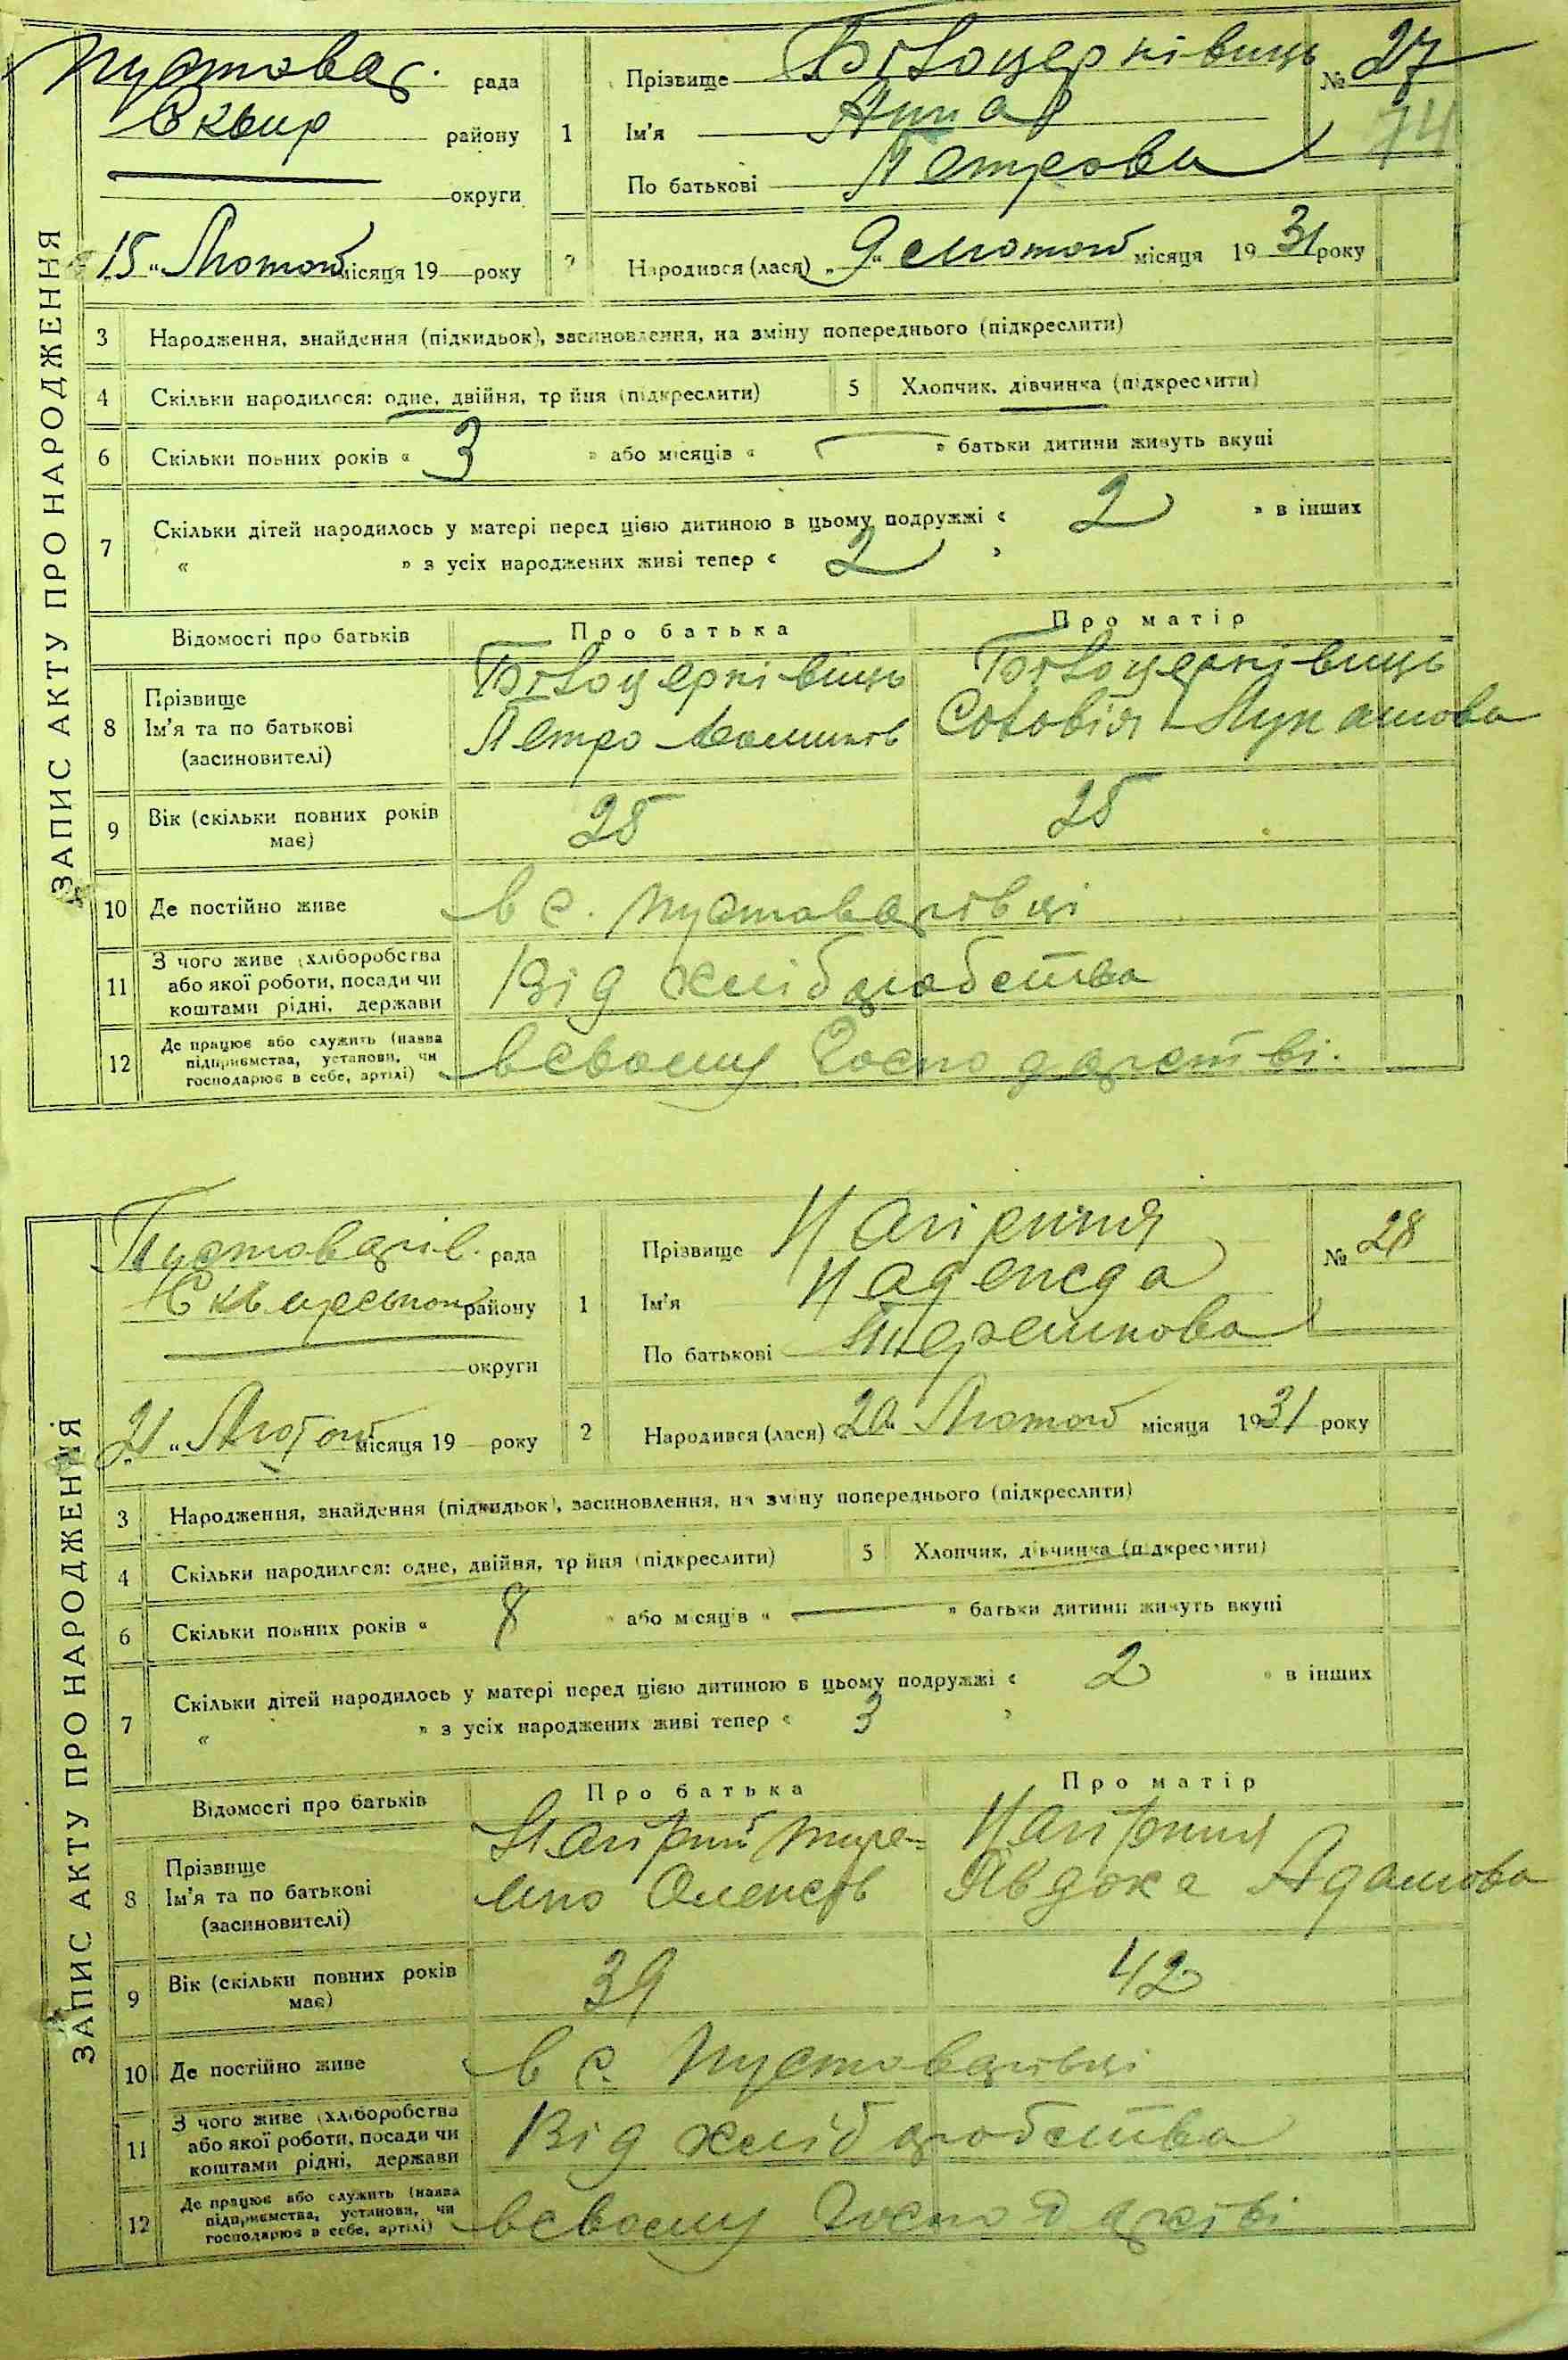 ЗАПИС АКТУ ПРО НАРОДЖЕННЯ
Пустовар. рада
Сквир району
округи
15 " Лютого місяця 19 — року
1 Прізвище Білоцерківець № 27
74
Ім'я Анна
По батькові Петрова
2 Народився (лася) " 9 " Лютого місяця 19 31 року
3 Народження, знайдення (підкидьок), засиновлення, на зміну попереднього (підкреслити)
4 Скільки народилося: одне, двійня, трійня (підкреслити) 5 Хлопчик, дівчинка (підкреслити)
6 Скільки повних років « 3 » або місяців « — » батьки дитини живуть вкупі
7 Скільки дітей народилось у матері перед цією дитиною в цьому подружжі « 2 » в інших
« » з усіх народжених живі тепер « 2 »
Відомості про батьків Про батька Про матір
8 Прізвище Білоцерківець Білоцерківець
Ім'я та по батькові Петро
(засиновителі)
9 Вік (скільки повних років має) 25 25
10 Де постійно живе в с. Пустоварівці
11 З чого живе (хліборобства або якої роботи, посади чи коштами рідні, держави Від хліборобства
12 Де працює або служить (назва підприємства, установи, чи господарює в себе, артілі) в своему господарстві.
ЗАПИС АКТУ ПРО НАРОДЖЕННЯ
Пустоварів. рада
Сквирського району
округи
21 " Лютого місяця 19 — року
1 Прізвище № 28
Ім'я Надежда
По батькові
2 Народився (лася) 20 " Лютого місяця 19 31 року
3 Народження, знайдення (підкидьок), засиновлення, на зміну попереднього (підкреслити)
4 Скільки народилося: одне, двійня, трійня (підкреслити) 5 Хлопчик, дівчинка (підкреслити)
6 Скільки повних років « 8 » або місяців « — » батьки дитини живуть вкупі
7 Скільки дітей народилось у матері перед цією дитиною в цьому подружжі « 2 » в інших
« » з усіх народжених живі тепер « 3 »
Відомості про батьків Про батька Про матір
8 Прізвище
Ім'я та по батькові Явдоха Адамова
(засиновителі)
9 Вік (скільки повних років має) 39 42
10 Де постійно живе в с. Пустоварівці
11 З чого живе (хліборобства або якої роботи, посади чи коштами рідні, держави Від хліборобства
12 Де працює або служить (назва підприємства, установи, чи господарює в себе, артілі) в своему господарстві